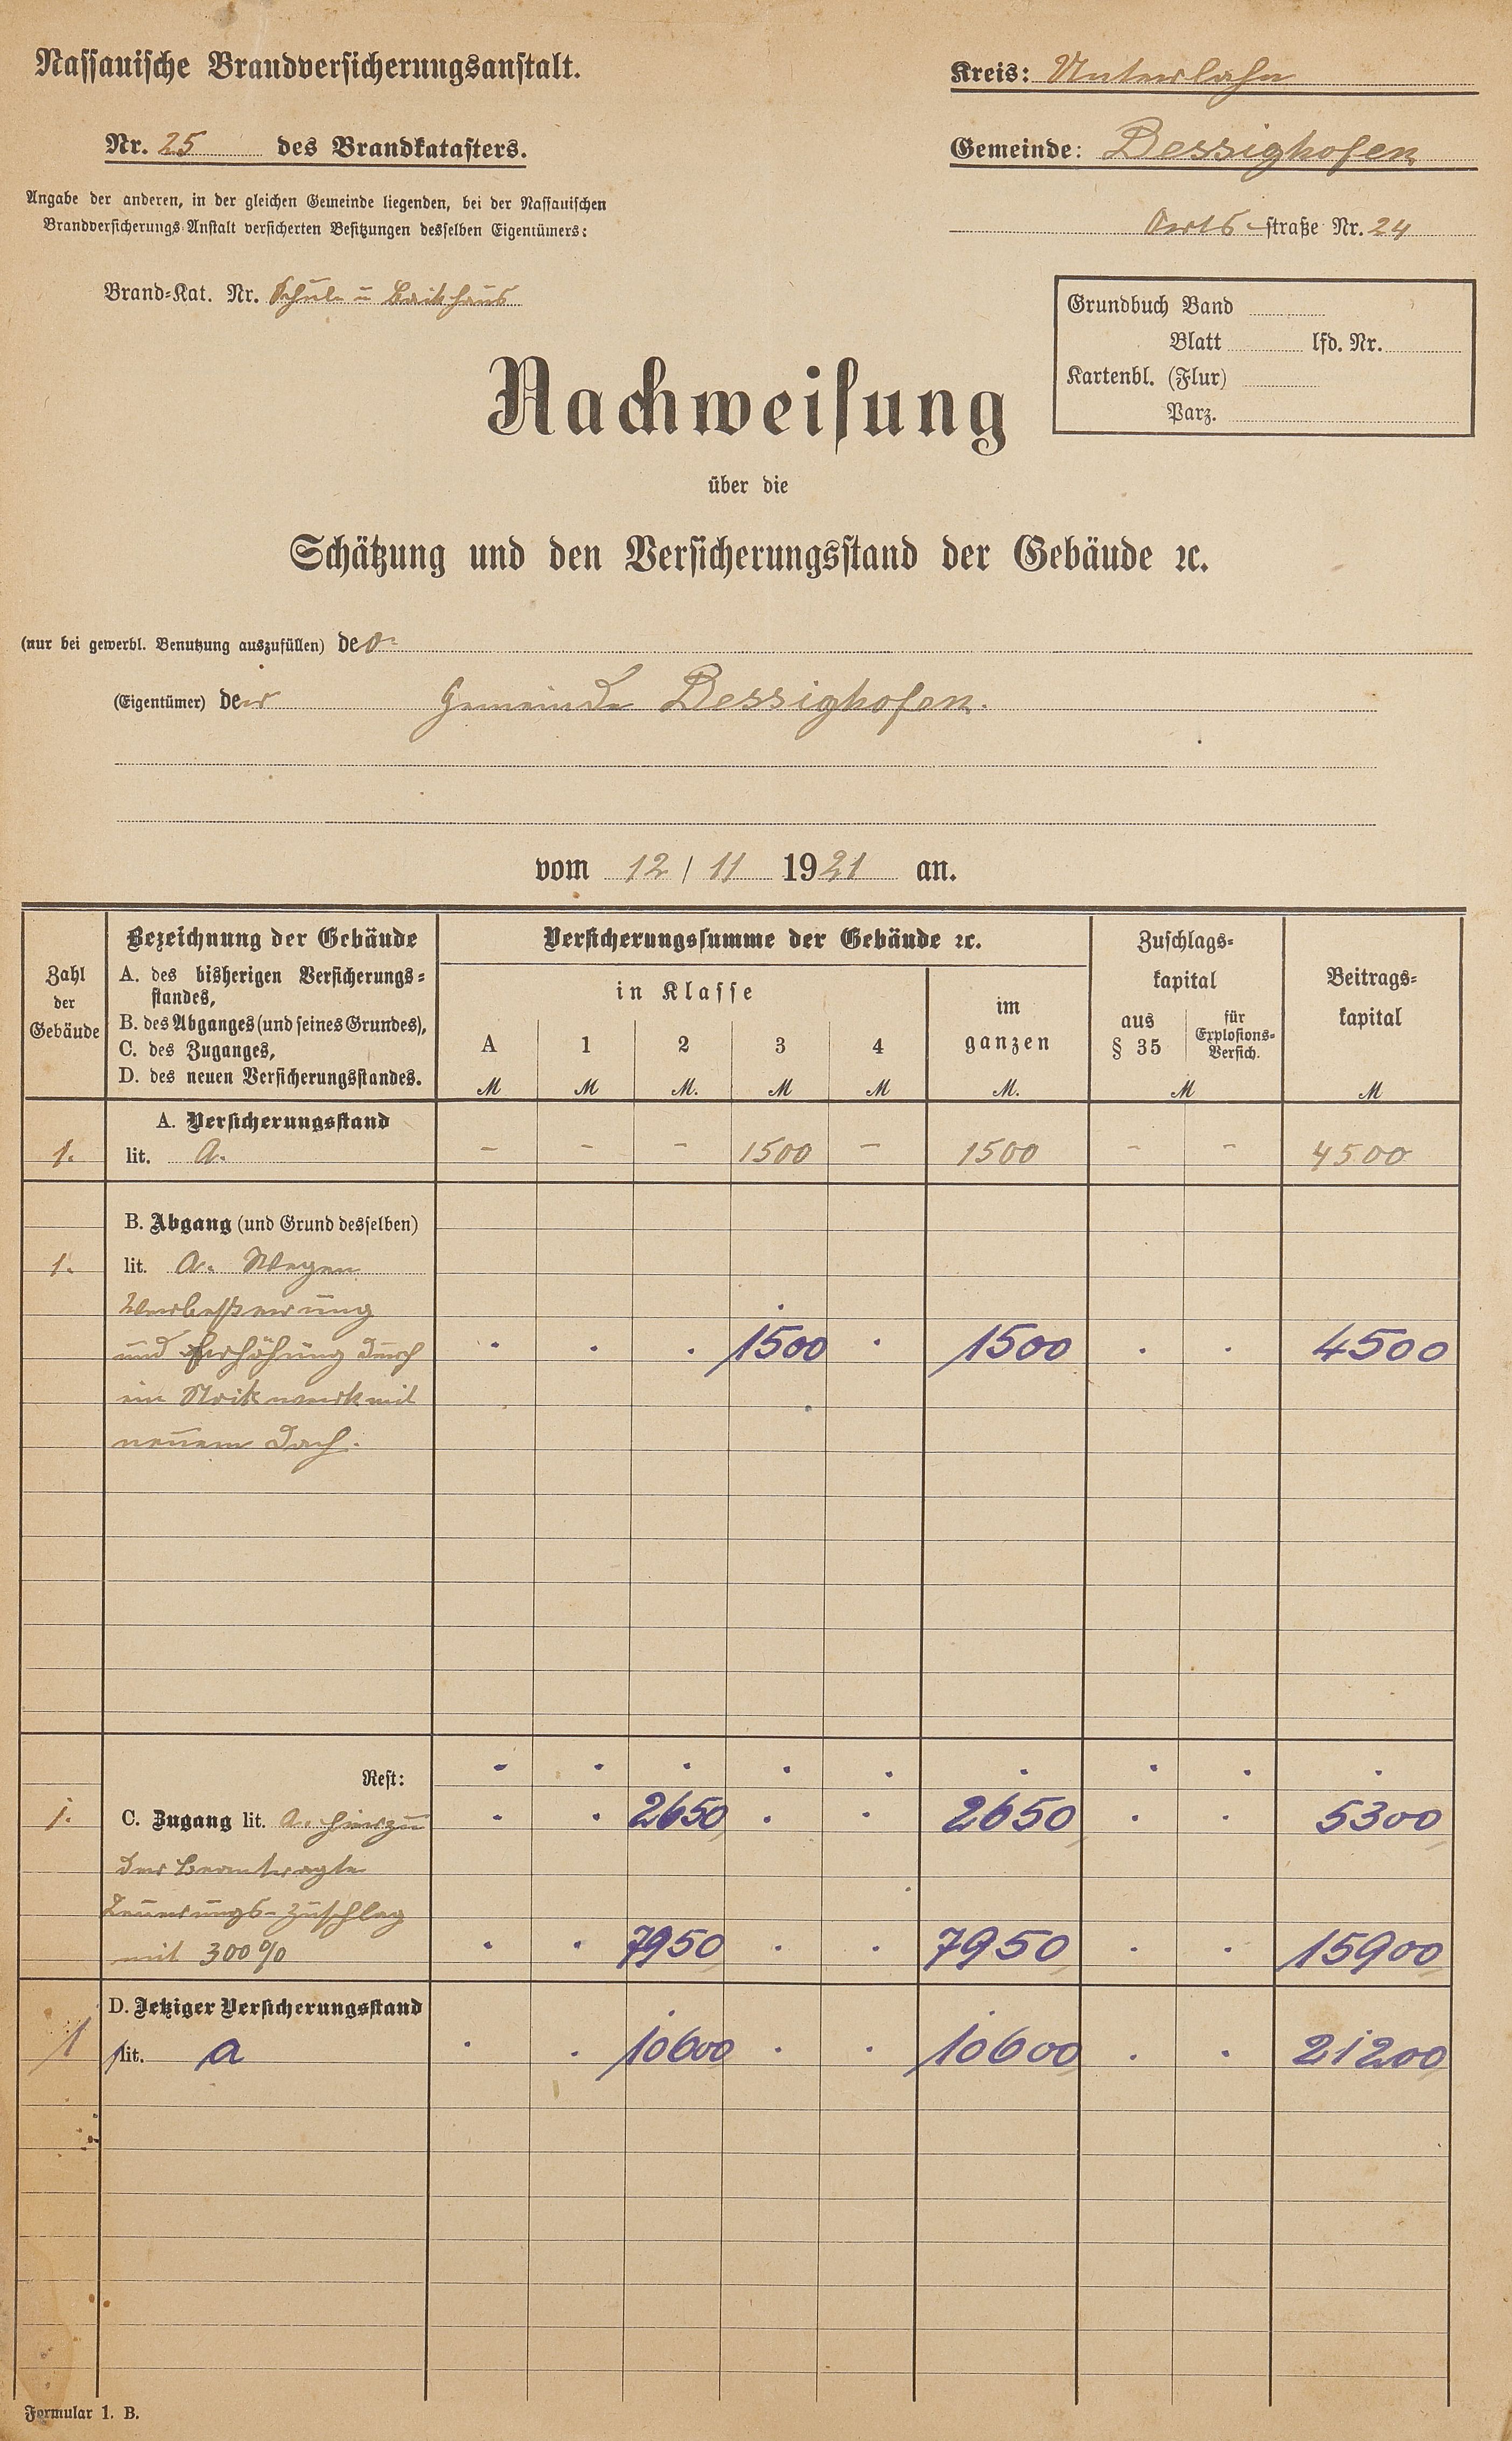 Nassauische Brandversicherungsanstalt.
Kreis: Unterlahn
Nr. 25 des Brandkatasters.
Gemeinde: Dessighofen
Angabe der anderen, in der gleichen Gemeinde liegenden, bei der Nassauischen
Brandversicherungs-Anstalt versicherten Besitzungen desselben Eigentümers:
Orts-straße Nr. 24
Brand-Kat. Nr. Schule u Backhaus
Grundbuch Band
Blatt lfd. Nr.
Kartenbl. (Flur)
Parz.
Nachweisung
über die
Schätzung und den Versicherungsstand der Gebäude ꝛc.
(nur bei gewerbl. Benutzung auszufüllen) de
(Eigentümer) der Gemeinde Dessighofen.
vom 12/11 1921 an.
Zahl der Gebäude
Bezeichnung der Gebäude
A. des bisherigen Versicherungs-
standes,
B. des Abganges (und seines Grundes),
C. des Zuganges,
D. des neuen Versicherungsstandes.
Versicherungssumme der Gebäude ꝛc.
in Klasse
A 1 2 3 4
M M M. M M
im ganzen
M.
Zuschlags-
kapital
aus § 35
für Explosions-Versich.
M
Beitrags-
kapital
M
A. Versicherungsstand
1. lit. a. - - - 1500 - 1500 - - 4500
B. Abgang (und Grund desselben)
1. lit. a. Wegen
Verbesserung
und Erhöhung durch . . . 1500 . 1500 . . 4500
ein Stockwerk mit
neuem Dach.
Rest: . . . . . . . . .
1. C. Zugang lit. a. hierzu . . 2650 . . 2650 . . 5300
der beantragte
Teuerungs-Zuschlag
mit 300% . . 7950 . . 7950 . . 15900
D. Jetziger Versicherungsstand
1 lit. a . . 10600 . . 10600 . . 21200
Formular 1. B.